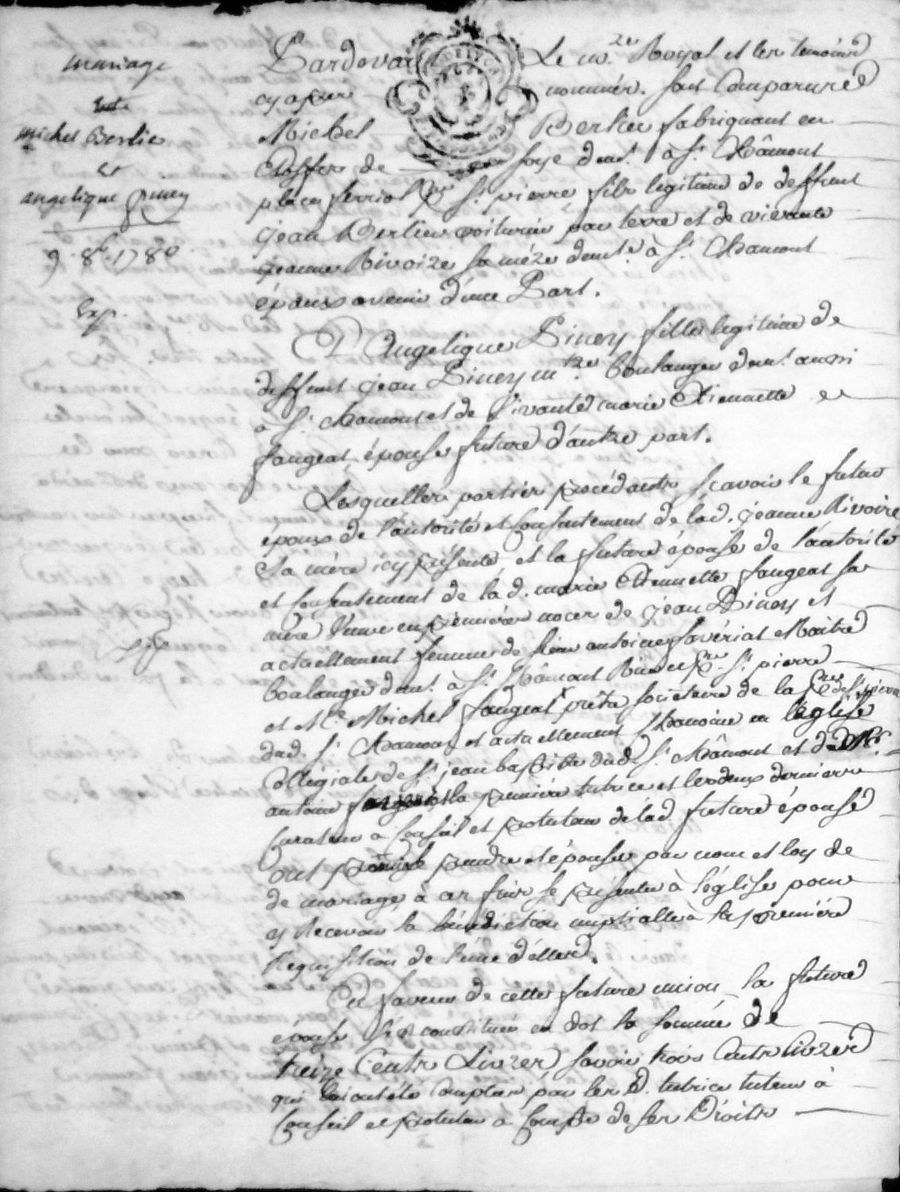 mariage
Entre
michel Berlier
et
angelique piney
9 8bre 1780
Exp.
Pardevant Le nre Royal et les temoins
cy apres nommés. sont comparurés
Michel Berlier fabriquant en
Etoffes de soye demt. à St. Chamont
place ferriol Psse St. pierre fils legitime de deffunt
jean Berlier voiturier par terre et de vivante
jeanne Rivoire sa mere demte à St. Chamont
époux avenir d'une Part.
Et Angelique Piney fille legitime de
deffunt jean Piney mtre boulanger demt. aussi
à St. Chamont et de vivante marie Etiennette
faugeat épouse future d'autre part.
Lesquelles parties procédantes scavoir le futur
epoux de l'autorité et consentement de lad. jeanne Rivoire
sa mère icy présente, et la future épouse de l'autorité
et consentement de la d. marie Etiennette faugeat sa
mère veuve en premieres noces de jean Piney et
actuellement femme de sieur antoine Maitre
boulanger demt. à St. Chamont Psse St. pierre
et Me. Michel faugeat prêtre societaire de la Psse de St. pierre
dud. St. Chamont et actuellement Chanoine en l'église
Collegiale de St. jean baptiste dud. St. Chamont et
antoine la premiere tutrice et les deux derniers
Curateur à Conseil et protuteur de lad. future épouse
ont promis prendre et épouser par nom et loy de
de mariage à ces fins se présenter à l'église pour
y Recevoir la bénédiction nuptialle à la premiere
Requisition de l'une d'elles.
En faveur de cette future union la future
épouse s'est constituée en dot la somme de
treize Cents Livres savoir trois Cents Livres
qui luy ont été comptés par les d. tutrice tuteur à
Conseil et protuteur à Compte de ses Droits